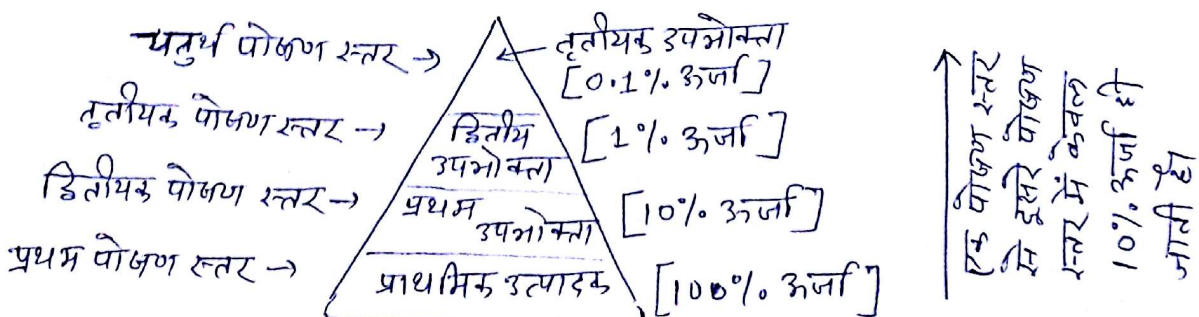 चतुर्थ पोषण स्तर →
← तृतीयक उपभोक्ता
[0.1% ऊर्जा]
तृतीयक पोषण स्तर →
द्वितीय
उपभोक्ता
[1% ऊर्जा]
द्वितीयक पोषण स्तर →
प्रथम
उपभोक्ता
[10% ऊर्जा]
प्रथम पोषण स्तर →
प्राथमिक उत्पादक
[100% ऊर्जा]
एक पोषण स्तर
से दूसरे पोषण
स्तर में केवल
10% ऊर्जा ही
जाती है।